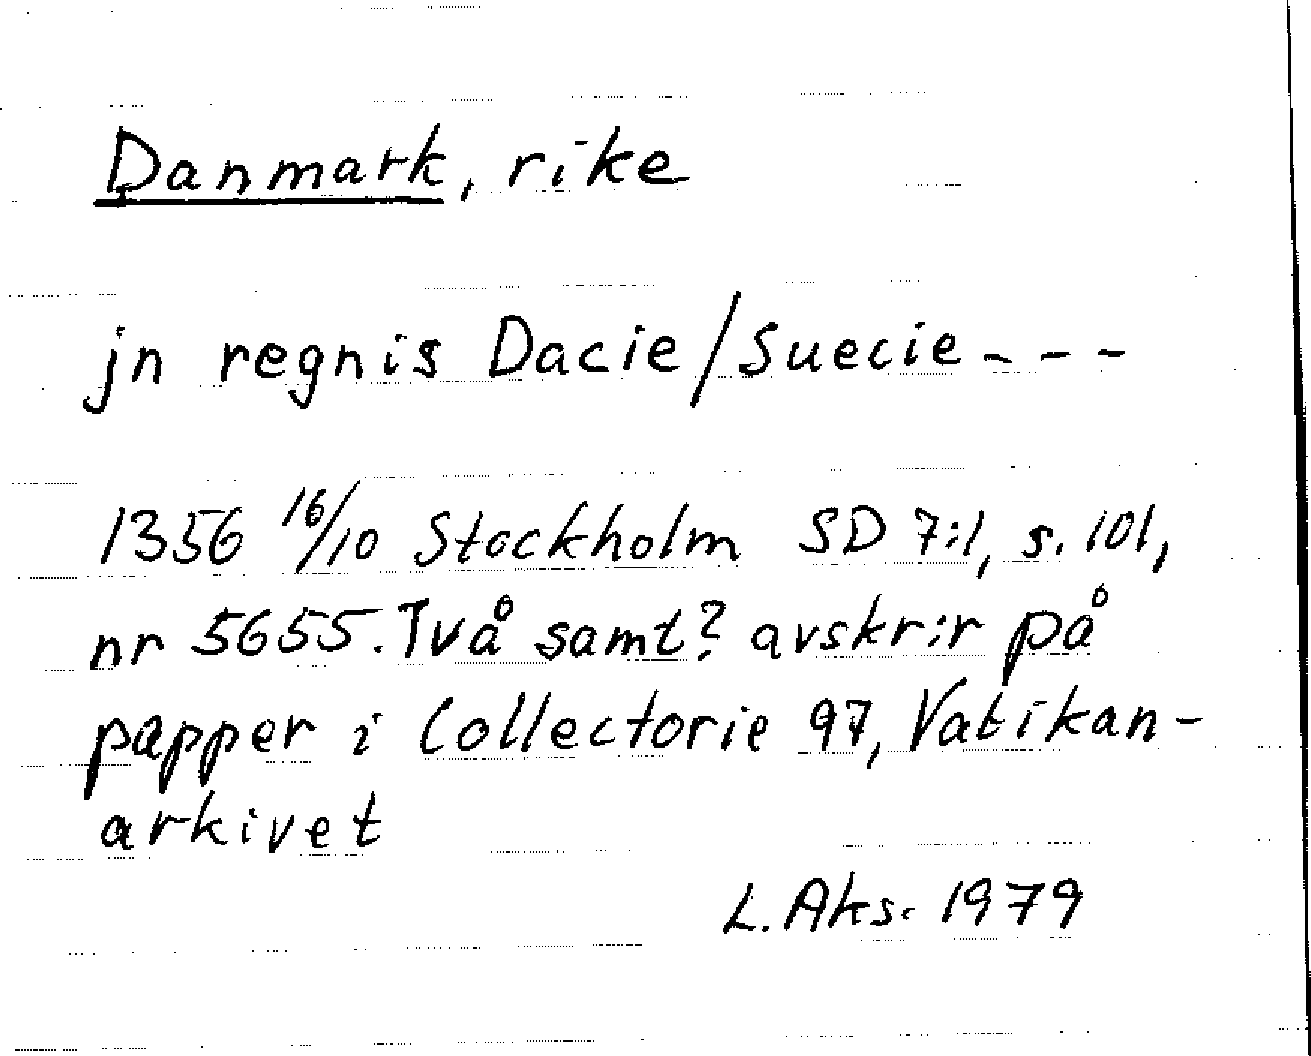 Danmark, rike
jn regnis Dacie/Suecie - - -
1356 16/10 Stockholm SD 7:1, s. 101,
nr 5655. Två samt? avskr:r på
papper i Collectorie 97, Vatikan-
arkivet
L. Aks. 1979